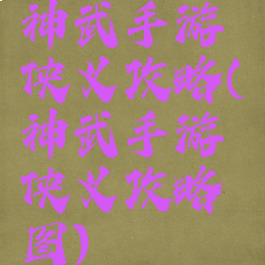 神武手游
侠义攻略(
神武手游
侠义攻略
图)